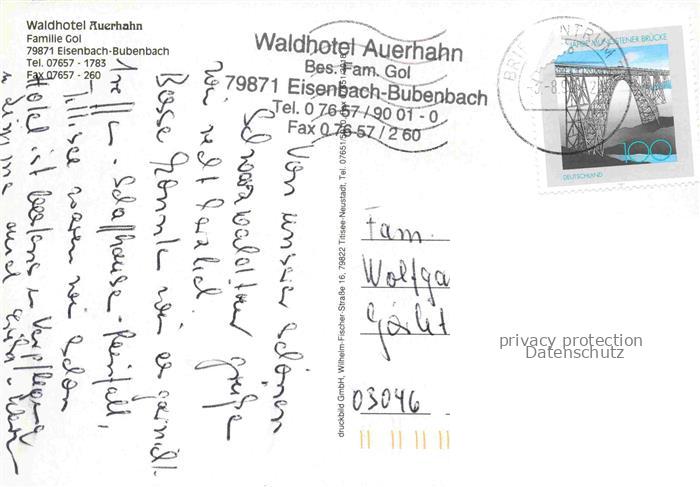 Waldhotel Auerhahn
Familie Gol
79871 Eisenbach-Bubenbach
Tel. 07657 - 1783
Fax 07657 - 260
Waldhotel Auerhahn
Bes. Fam. Gol
79871 Eisenbach-Bubenbach
Tel. 0 76 57 / 90 01 - 0
Fax 0 76 57 / 2 60
BRIEFZENTRUM
MÜNGSTENER BRÜCKE
100
DEUTSCHLAND
Von unserer schönen
Schwarzwaldtour grüße
wir recht herzlich
Besse könnte wir es garnicht
treffen. Schaffhause-Reinfall,
Titisee waren wir schon
Hotel ist bestens in Verpflegung
u Zimmer auch
druckbild GmbH, Wilhelm-Fischer-Straße 16, 79822 Titisee-Neustadt, Tel. 07651/
Fam.
Wolfga
Görlit
03046
privacy protection
Datenschutz